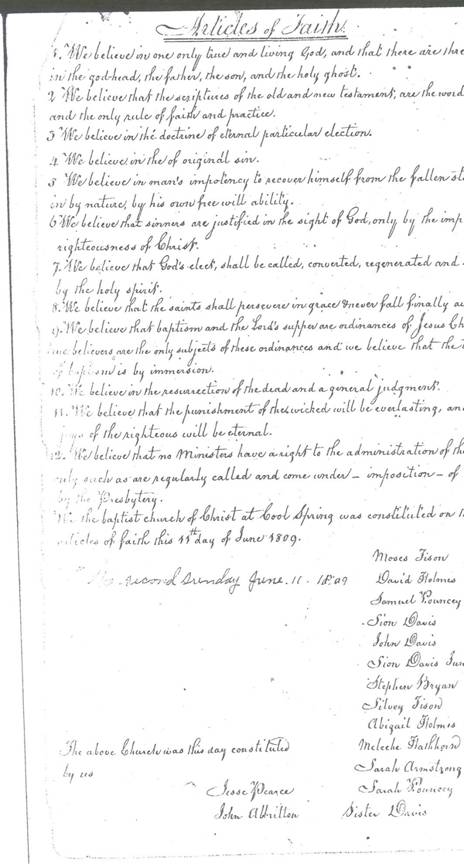 Articles of Faith.
1. We believe in one only true and living God, and that there are thre
in the godhead, the father, the son, and the holy ghost.
2 We believe that the scriptures of the old and new testament, are the word
and the only rule of faith and practice.
3 We believe in the doctrine of eternal particular election.
4 We believe in the of original sin.
5 We believe in man's impotency to recover himself from the fallen st
in by nature, by his own free will ability.
6 We believe that sinners are justified in the sight of God, only by the imp
righteousness of Christ.
7. We believe that God's elect, shall be called, converted, regenerated and
by the holy spirit.
8. We believe that the saints shall persevere in grace & never fall finally a
9. We believe that baptism and the Lord's supper are ordinances of Jesus Ch
true believers are the only subjects of these ordinances and we believe that the
of baptism is by immersion.
10. We believe in the resurrection of the dead and a general judgment.
11. We believe that the punishment of the wicked will be everlasting, an
joys of the righteous will be eternal.
12. We believe that no Ministers have a right to the administration of th
only such as are regularly called and come under - imposition - of
by the Presbytery.
We the baptist church of Christ at Cool Spring was constituted on t
articles of faith this 11th day of June 1809.
second Sunday June. 11. 1809
Moses Tison
David Holmes
Samuel Pouncey
Sion Davis
John Davis
Sion Davis Jun
Stephen Bryan
Silvey Tison
Abigail Holmes
The above Church was this day constituted
by us
Meleche Hathhorn
Sarah Armstrong
Jesse Pearce
Sarah Pouncey
John Albritton
Sister Davis